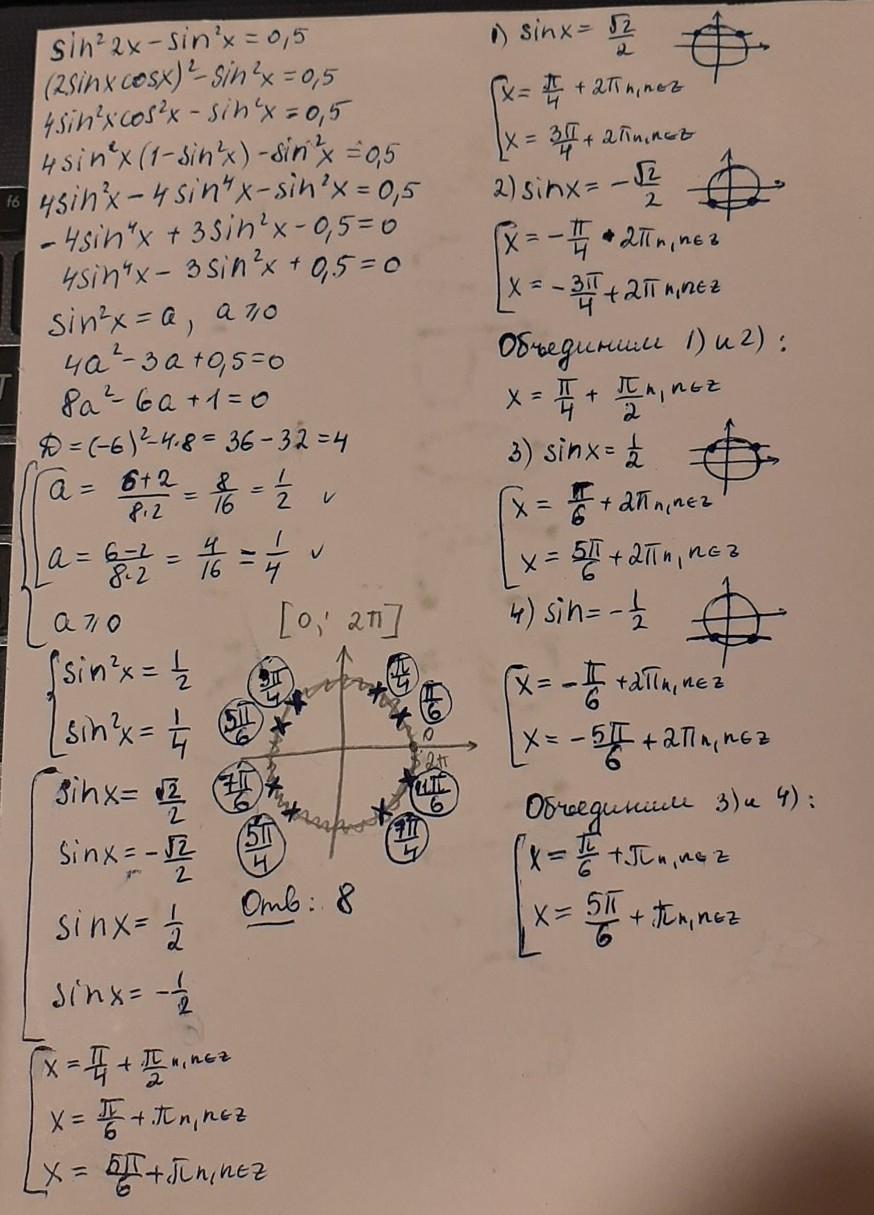 sin²2x - sin²x = 0,5
(2sinxcosx)² - sin²x = 0,5
4sin²xcos²x - sin²x = 0,5
4sin²x(1-sin²x) - sin²x = 0,5
4sin²x - 4sin⁴x - sin²x = 0,5
-4sin⁴x + 3sin²x - 0,5 = 0
4sin⁴x - 3sin²x + 0,5 = 0
sin²x = a, a ⩾ 0
4a² - 3a + 0,5 = 0
8a² - 6a + 1 = 0
D = (-6)² - 4·8 = 36 - 32 = 4
a = (6+2)/(8·2) = 8/16 = 1/2 ✓
a = (6-2)/(8·2) = 4/16 = 1/4 ✓
a ⩾ 0
[0; 2π]
sin²x = 1/2
sin²x = 1/4
sinx = √2/2
sinx = -√2/2
sinx = 1/2
sinx = -1/2
3π/4
π/4
5π/6
π/6
0
2π
7π/6
11π/6
5π/4
7π/4
Отв: 8
x = π/4 + π/2 n, n∈z
x = π/6 + πn, n∈z
x = 5π/6 + πn, n∈z
1) sinx = √2/2
x = π/4 + 2πn, n∈z
x = 3π/4 + 2πn, n∈z
2) sinx = -√2/2
x = -π/4 + 2πn, n∈z
x = -3π/4 + 2πn, n∈z
Объединим 1) и 2):
x = π/4 + π/2 n, n∈z
3) sinx = 1/2
x = π/6 + 2πn, n∈z
x = 5π/6 + 2πn, n∈z
4) sin = -1/2
x = -π/6 + 2πn, n∈z
x = -5π/6 + 2πn, n∈z
Объединим 3) и 4):
x = π/6 + πn, n∈z
x = 5π/6 + πn, n∈z
f6